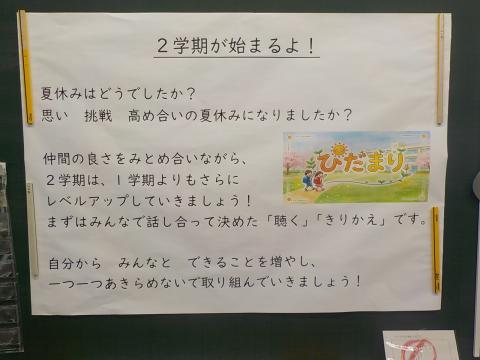 ２学期が始まるよ！
夏休みはどうでしたか？
思い　挑戦　高め合いの夏休みになりましたか？
仲間の良さをみとめ合いながら、
２学期は、１学期よりもさらに
レベルアップしていきましょう！
まずはみんなで話し合って決めた「聴く」「きりかえ」です。
ひだまり
自分から　みんなと　できることを増やし、
一つ一つあきらめないで取り組んでいきましょう！